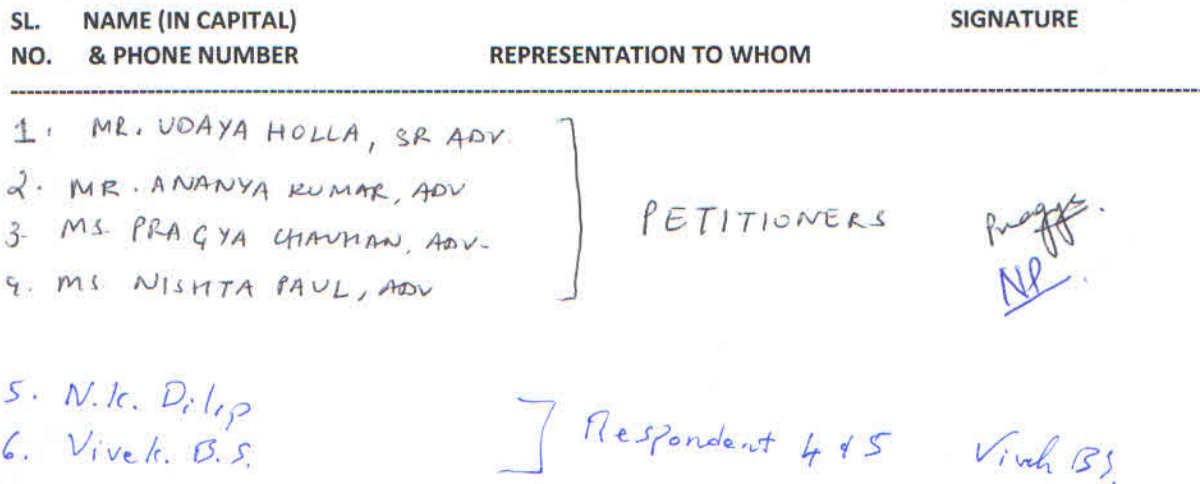 SL. NAME (IN CAPITAL) SIGNATURE
NO. & PHONE NUMBER REPRESENTATION TO WHOM
1. MR. UDAYA HOLLA, SR ADV.
2. MR. ANANYA KUMAR, ADV
3- MS. PRAGYA CHAUHAN, ADV-
4. MS NISHTA PAUL, ADV
PETITIONERS
NP.
5. N.K. Dilip
6. Vivek. B.S.
Respondent 4 & 5 Vivek BS.